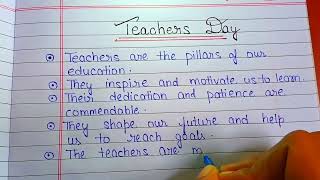 Teachers Day
Teachers are the pillars of our
education.
They inspire and motivate us to learn.
Their dedication and patience are
commendable.
They shape our future and help
us to reach goals.
The teachers are m